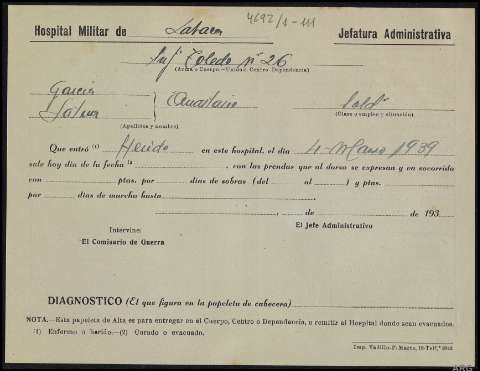 4692/1-111
Hospital Militar de
Jefatura Administrativa
Inf. Toledo nº 26
(Arma o Cuerpo - Unidad, Centro Dependencia)
Garcia
Soldº
(Apellidos y nombre)
(Clase o empleo y situación)
Que entró (1) Herido en este hospital, el día 4-Marzo 1939
sale hoy día de la fecha , con las prendas que al dorso se expresan y es socorrido
con ptas. por días de sobras (del al ) y ptas.
por días de marcha hasta
, de de 193
Intervine:
El Comisario de Guerra
El Jefe Administrativo
DIAGNOSTICO (El que figura en la papeleta de cabecera)
NOTA.-Esta papeleta de Alta es para entregar en el Cuerpo, Centro o Dependencia, o remitir al Hospital donde sean evacuados.
(1) Enfermo o herido.-(2) Curado o evacuado.
ARG